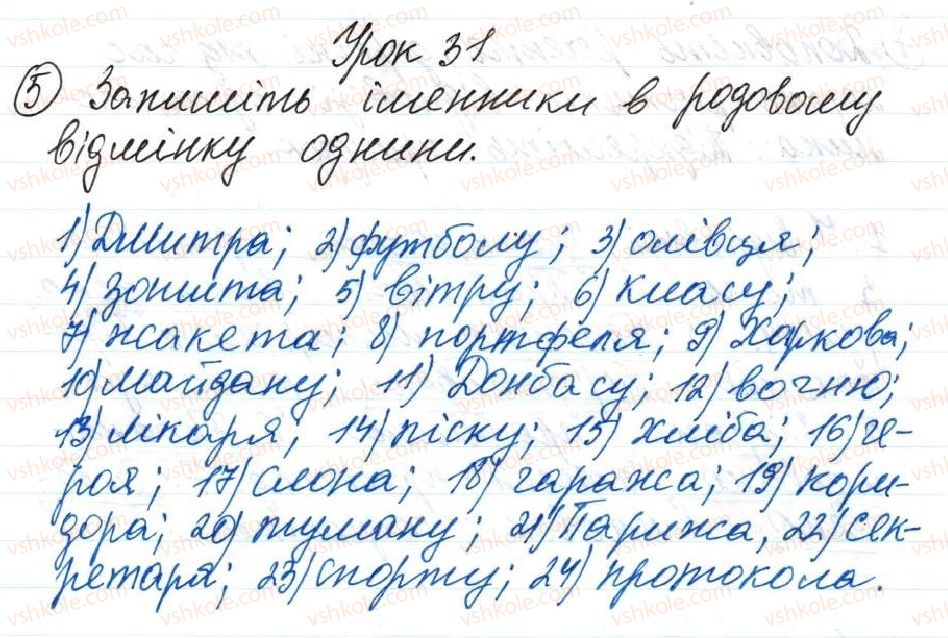 Урок 31
5 Запишіть іменники в родовому
відмінку однини.
1) Дмитра; 2) футболу; 3) олівця;
4) зошита; 5) вітру; 6) класу;
7) жакета; 8) портфеля; 9) Харкова;
10) майдану; 11) Донбасу; 12) вогню;
13) лікаря; 14) піску; 15) хліба; 16) ге-
роя; 17) слона; 18) гаража; 19) кори-
дора; 20) туману; 21) Парижа, 22) сек-
ретаря; 23) спорту; 24) протокола.